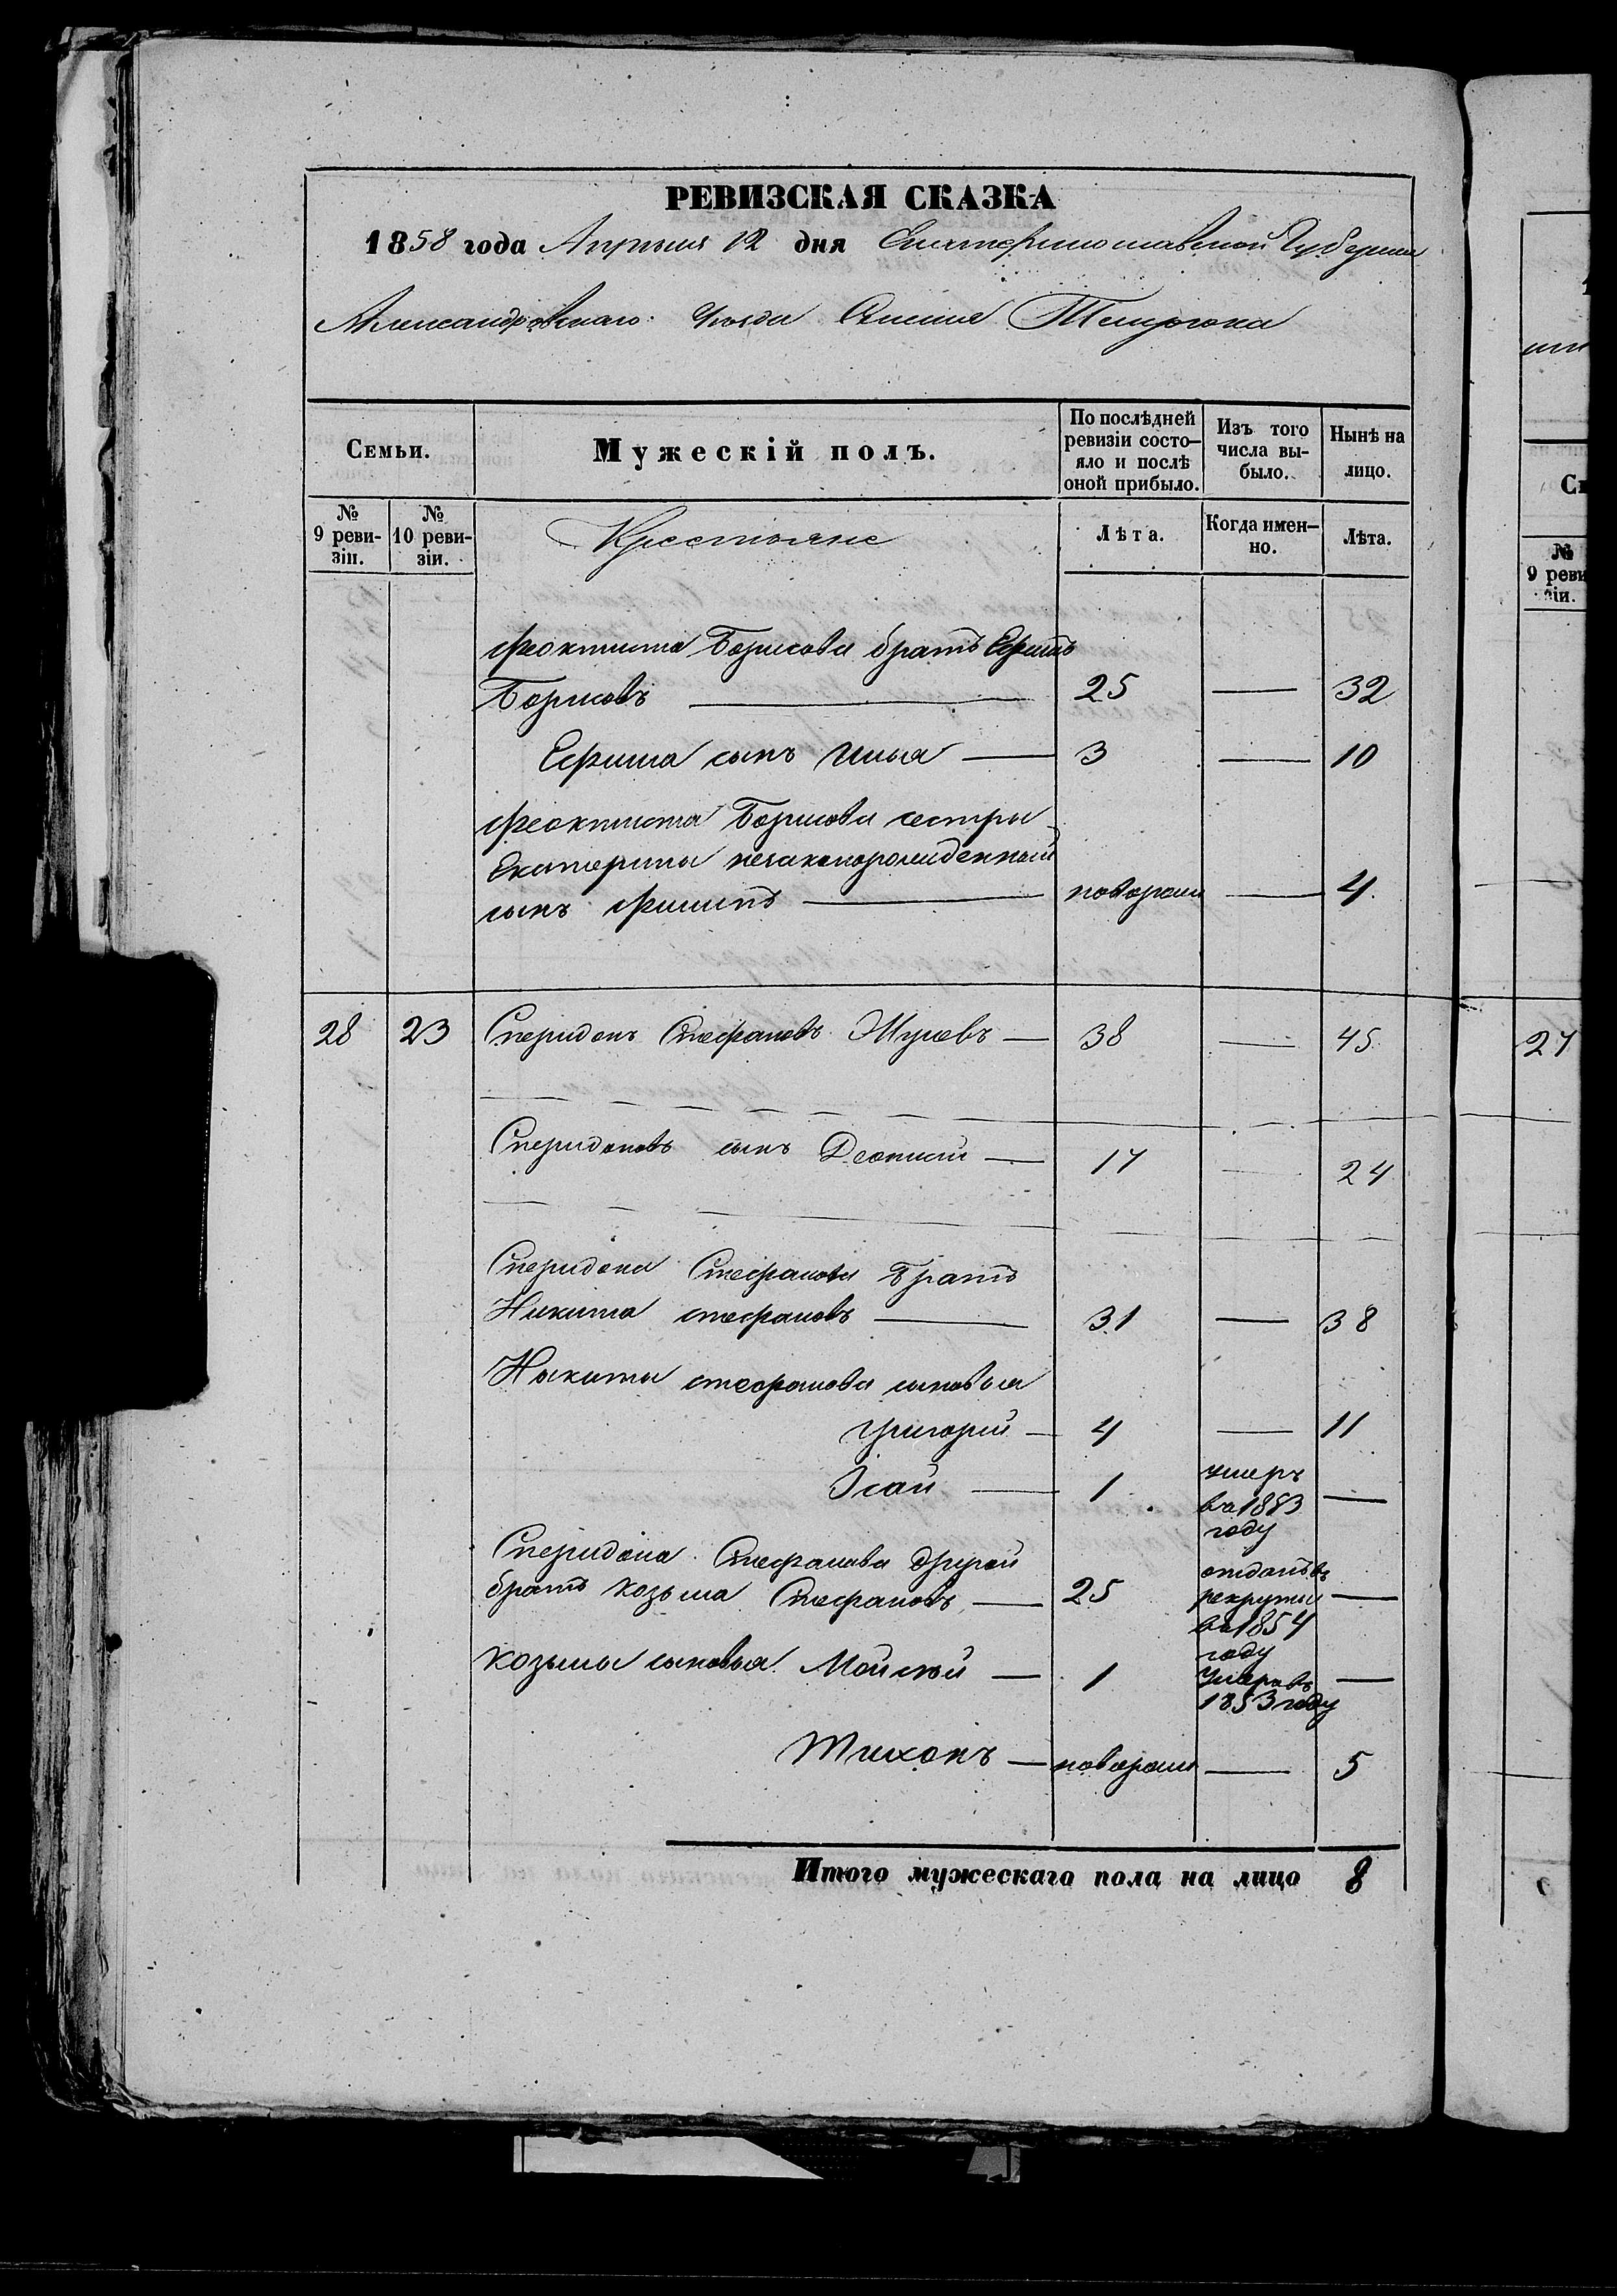 РЕВИЗСКАЯ СКАЗКА
1858 года Апрѣля 12 дня Екатеринославской Губернiи
Александровскаго Уѣзда Селенiя Темрюка
Семьи.
Мужескій полъ.
По послѣдней ревизіи состо-яло и послѣ оной прибыло.
Изъ того числа вы-было.
Нынѣ на лицо.
№ 9 реви-зіи.
№ 10 реви-зіи.
Крестьяне
Лѣта.
Когда имен-но.
Лѣта.
Феоктиста Борисова братъ
Борисовъ — 25 — 32
сынъ Илья — 3 — 10
Феоктиста Борисова сестры
Екатерины незаконорожденный
сынъ Филипъ — новорож — 4
28 23 Спиридонъ Стефановъ — 38 — 45
Спиридоновъ сынъ — 17 — 24
Спиридона Стефанова Братъ
Никита стефановъ — 31 — 38
Никиты стефанова сыновья
Григорій — 4 — 11
Ісай — 1 умеръ —
въ 1853
году
Спиридона Стефанова другой
братъ Козьма Стефановъ — 25 отданъ въ
рекруты —
въ 1854
году
Козьмы сыновья Мойсѣй — 1 Умеръ въ —
1853 году
Тихонъ — новорож — 5
Итого мужескаго пола на лицо 8
№
9 реви
зіи.
27